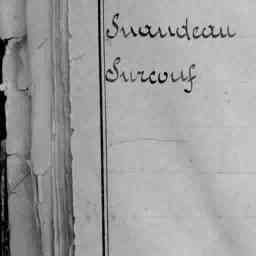 Suaudeau
Surcouf